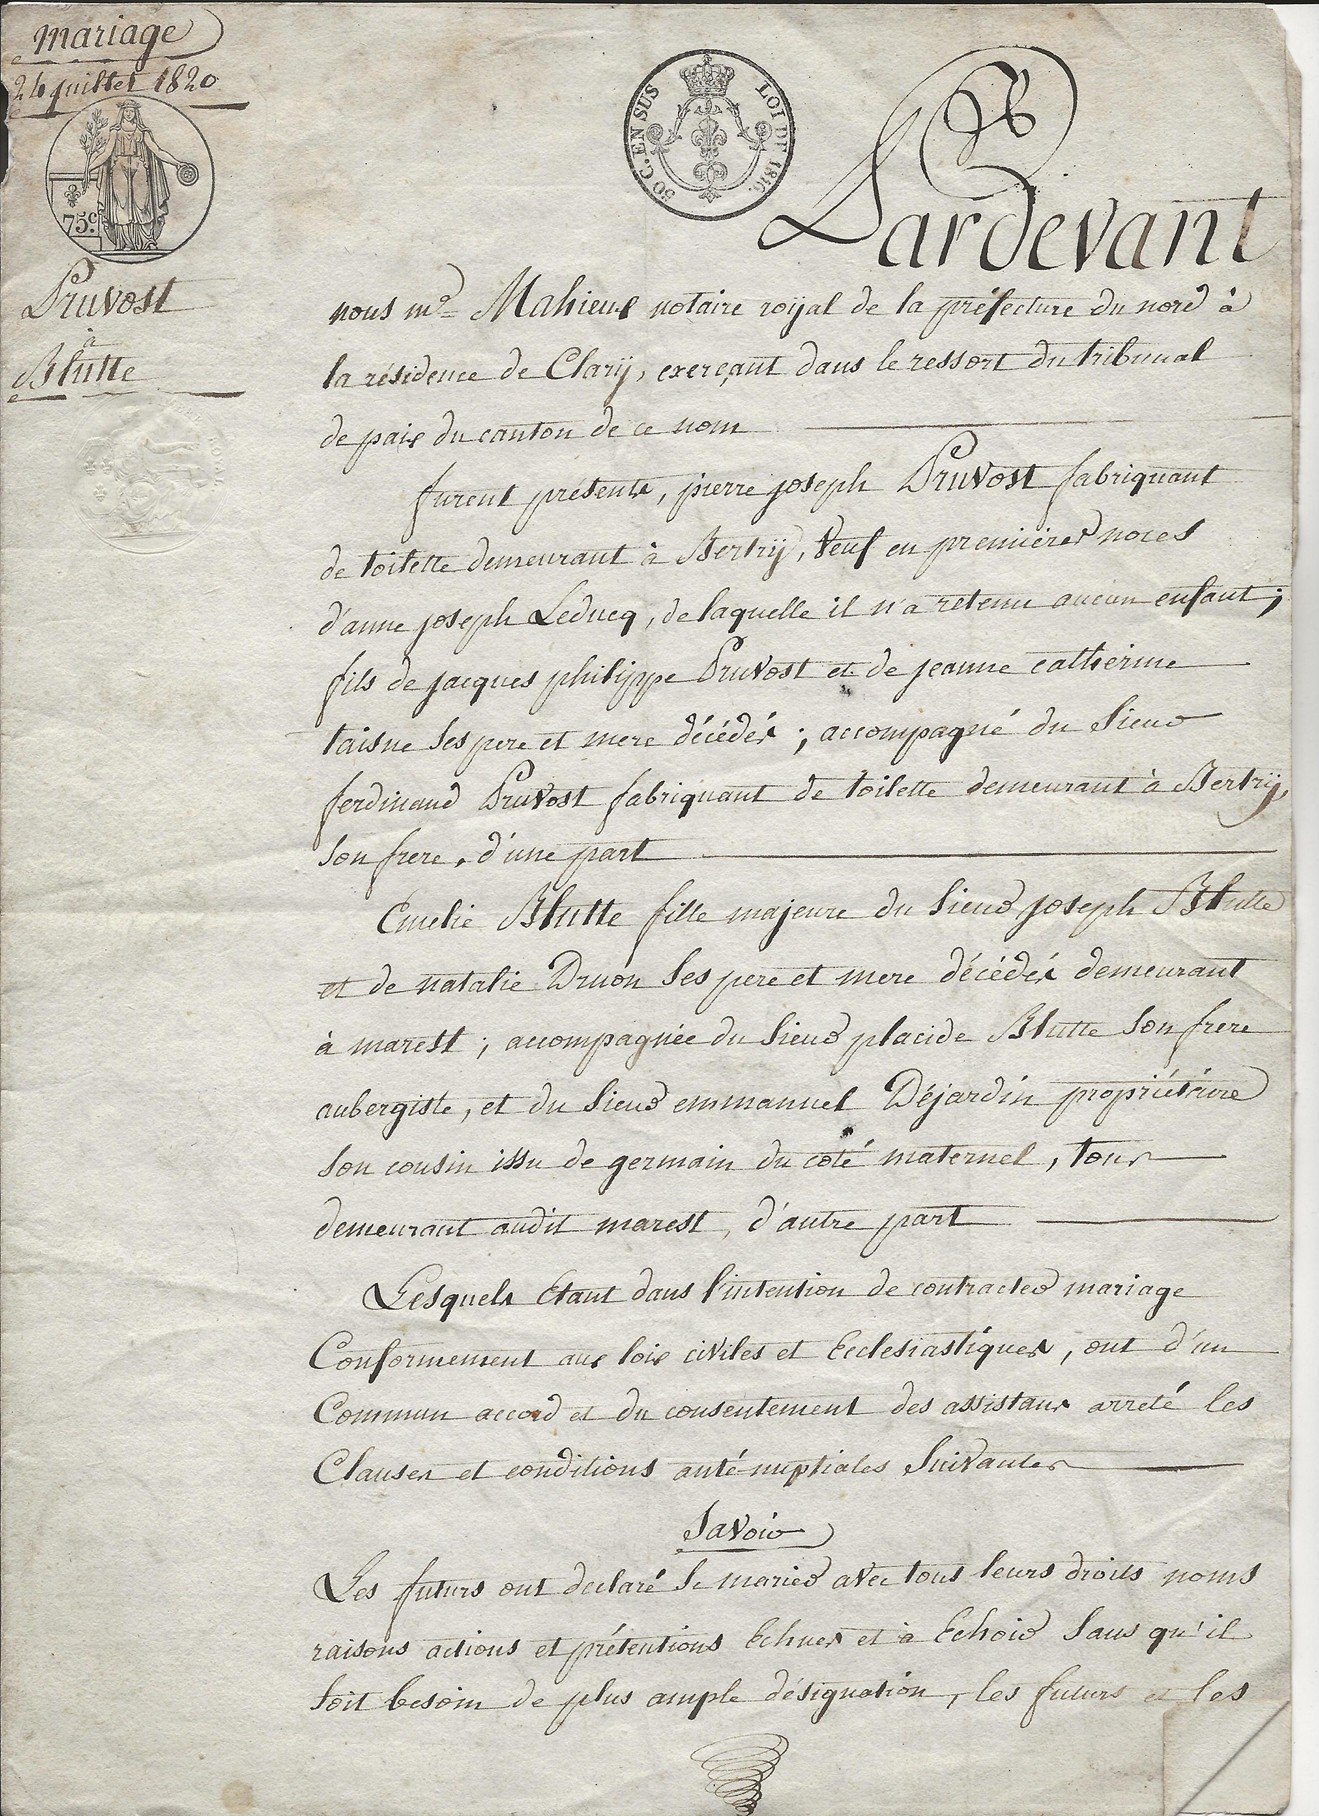 mariage
24 juillet 1820
50 C. EN SUS LOI DE 1816.
75c.
Pruvost
à
Blutte
Pardevant
nous me Mahieux notaire roÿal de la préfecture du nord à
la résidence de Clarÿ, exerçant dans le ressort du tribunal
de paix du canton de ce nom
furent présents, pierre joseph Pruvost fabriquant
de toilette demeurant à Bertrÿ, Veuf en premières noces
d'anne joseph Leducq, de laquelle il n'a retenu aucun enfant;
fils de jacques philippe Pruvost et de jeanne catherine
taisne ses pere et mere décédés; accompagné du sieur
ferdinand Pruvost fabriquant de toilette demeurant à Bertrÿ,
son frere, d'une part
Emelie Blutte fille majeure du sieur joseph Blutte
et de natalie Druon ses pere et mere décédés demeurant
à marest; accompagnée du sieur placide Blutte son frere
aubergiste, et du sieur emmanuel Déjardin propriétaire
son cousin issu de germain du coté maternel, tous
demeurant audit marest, d'autre part
Lesquels Etant dans l'intention de contracter mariage
Conformement aux loix civiles et Ecclesiastiques, ont d'un
Commun accord et du consentement des assistans arreté les
Clauses et conditions anté-nuptiales Suivantes
Savoir
Les futurs ont declaré se marier avec tous leurs droits noms
raisons actions et prétentions Echues et à Echoir sans qu'il
soit besoin de plus ample désignation, les futurs et les